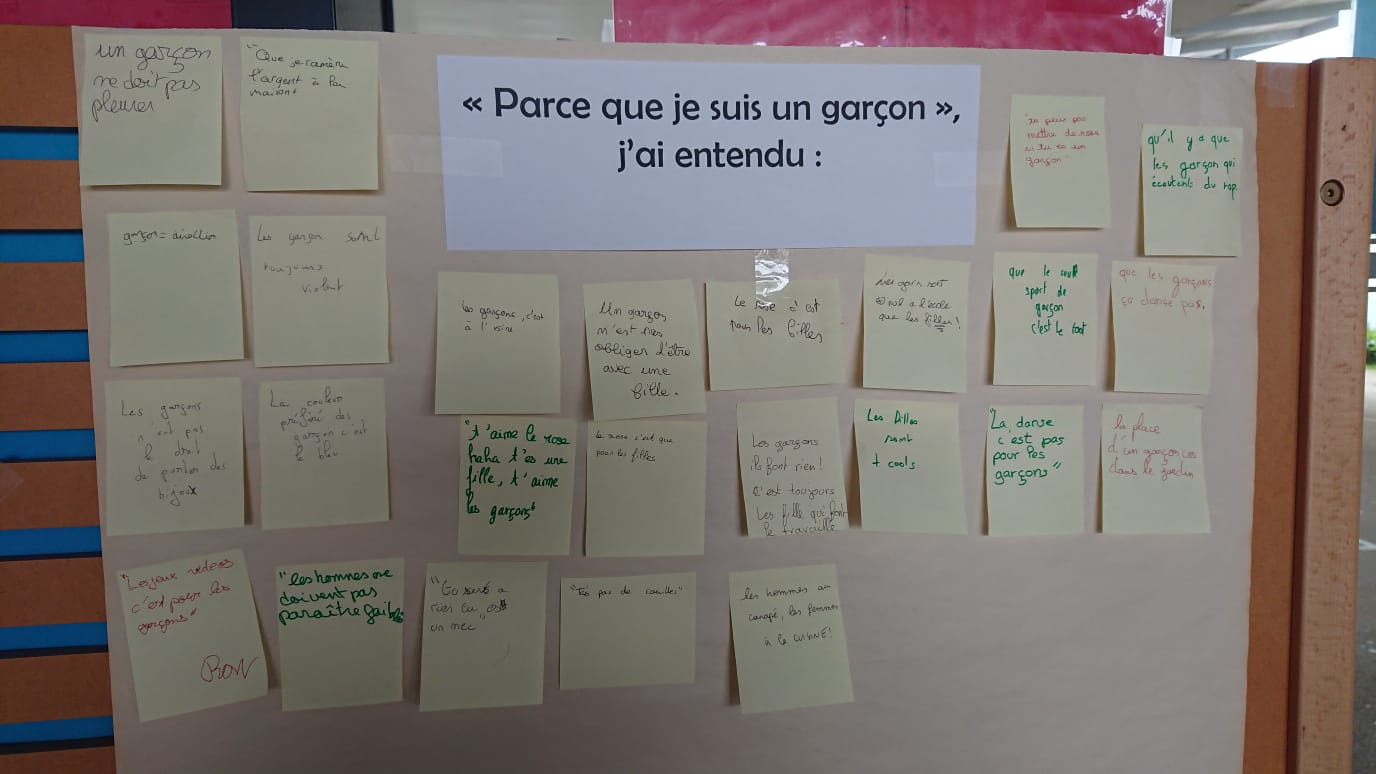 « Parce que je suis un garçon »,
j'ai entendu :
un garçon
ne doit pas
pleurer
"Que je ramène
l'argent à la
maison"
"tu peux pas
mettre de rose
si tu es un
garçon"
qu'il y a que
les garçon qui
écoutent du rap.
garçon =
Les garçon sont
toujours
violent
les garçons, c'est
à l'usine
Un garçon
n'est pas
obliger d'être
avec une
fille.
Le rose c'est
pour les filles
à l'école
que les filles !
que le seul
sport de
garçon
c'est le foot
que les garçons
ça danse pas.
Les garçons
n'ont pas
le droit
de porter des
bijoux
La couleur
préféré des
garçon c'est
le bleu
"t'aime le rose
haha t'es une
fille, t'aime
les garçons"
le rose c'est que
pour les filles
Les garçons
ils font rien !
C'est toujours
Les fille qui font
le travaille
Les filles
sont
+ cools
"La danse
c'est pas
pour les
garçons"
la place
d'un garçon ces
dans le jardin
"Les jeux vidéos
c'est pour les
garçons"
"les hommes ne
doivent pas
paraître faible"
"Tu sers a
rien tu es
un mec"
"T'as pas de couilles"
les hommes au
canapé, les femmes
à la cuisine !